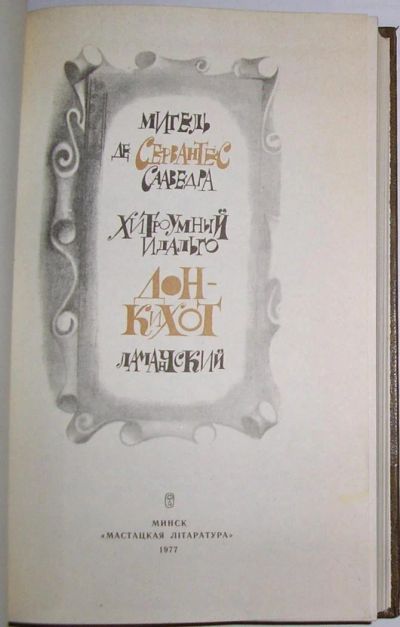 МИГЕЛЬ
ДЕ СЕРВАНТЕС
СААВЕДРА
ХИТРОУМНЫЙ
ИДАЛЬГО
ДОН-
КИХОТ
ЛАМАНЧСКИЙ
МИНСК
«МАСТАЦКАЯ ЛІТАРАТУРА»
1977